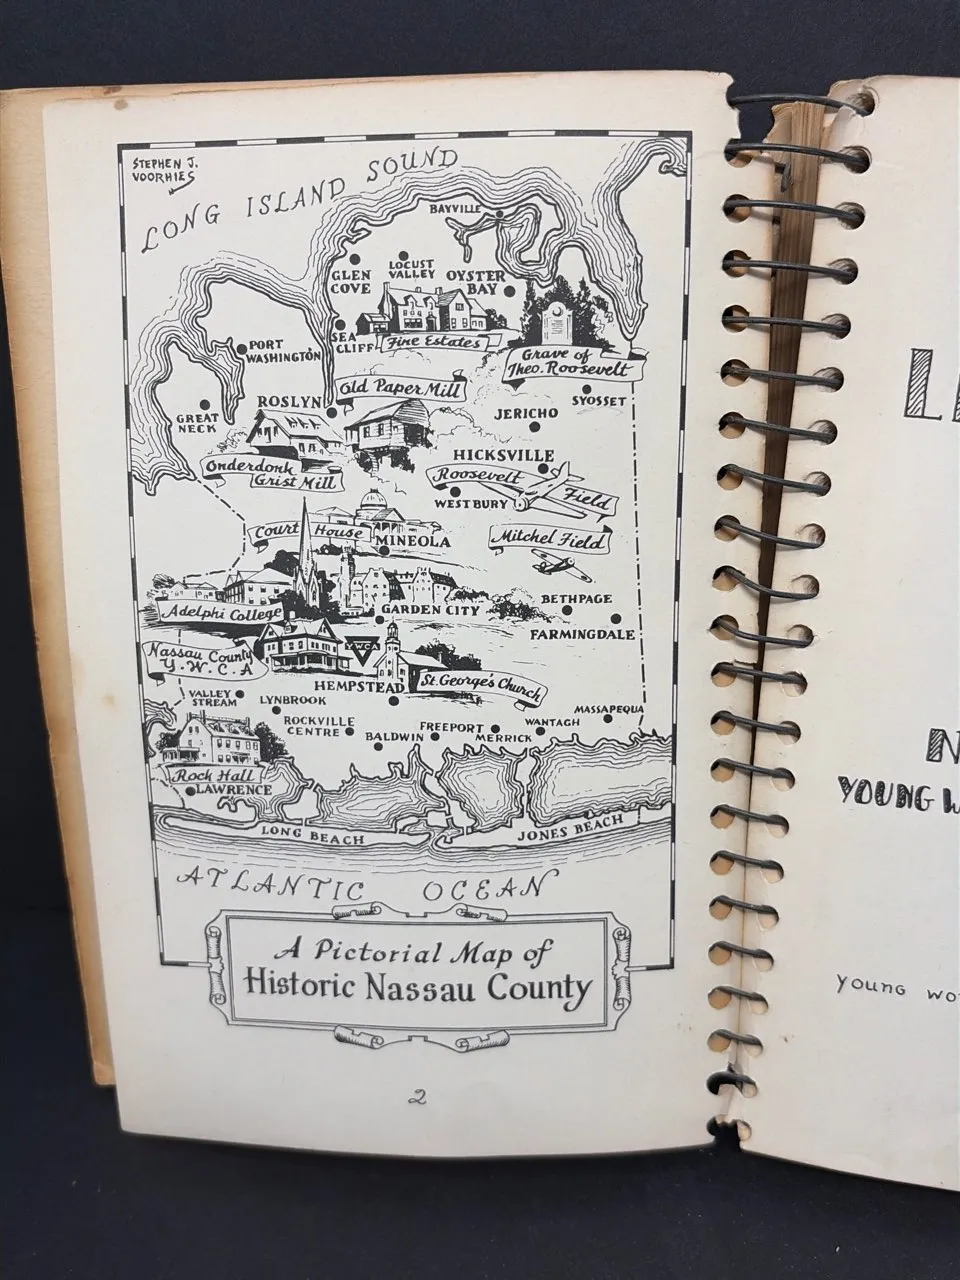 STEPHEN J.
VOORHIES
LONG ISLAND SOUND
BAYVILLE
GLEN
COVE
LOCUST
VALLEY
OYSTER
BAY
SEA
CLIFF
Fine Estates
Grave of
Theo. Roosevelt
PORT
WASHINGTON
Old Paper Mill
SYOSSET
GREAT
NECK
ROSLYN
JERICHO
Onderdonk
Grist Mill
HICKSVILLE
Roosevelt Field
WESTBURY
Court House
MINEOLA
Mitchel Field
Adelphi College
GARDEN CITY
BETHPAGE
FARMINGDALE
Nassau County
Y.W.C.A
YWCA
HEMPSTEAD
St. George's Church
VALLEY
STREAM
LYNBROOK
ROCKVILLE
CENTRE
BALDWIN
FREEPORT
MERRICK
WANTAGH
MASSAPEQUA
Rock Hall
LAWRENCE
LONG BEACH
JONES BEACH
ATLANTIC OCEAN
A Pictorial Map of
Historic Nassau County
2
YOUNG
young